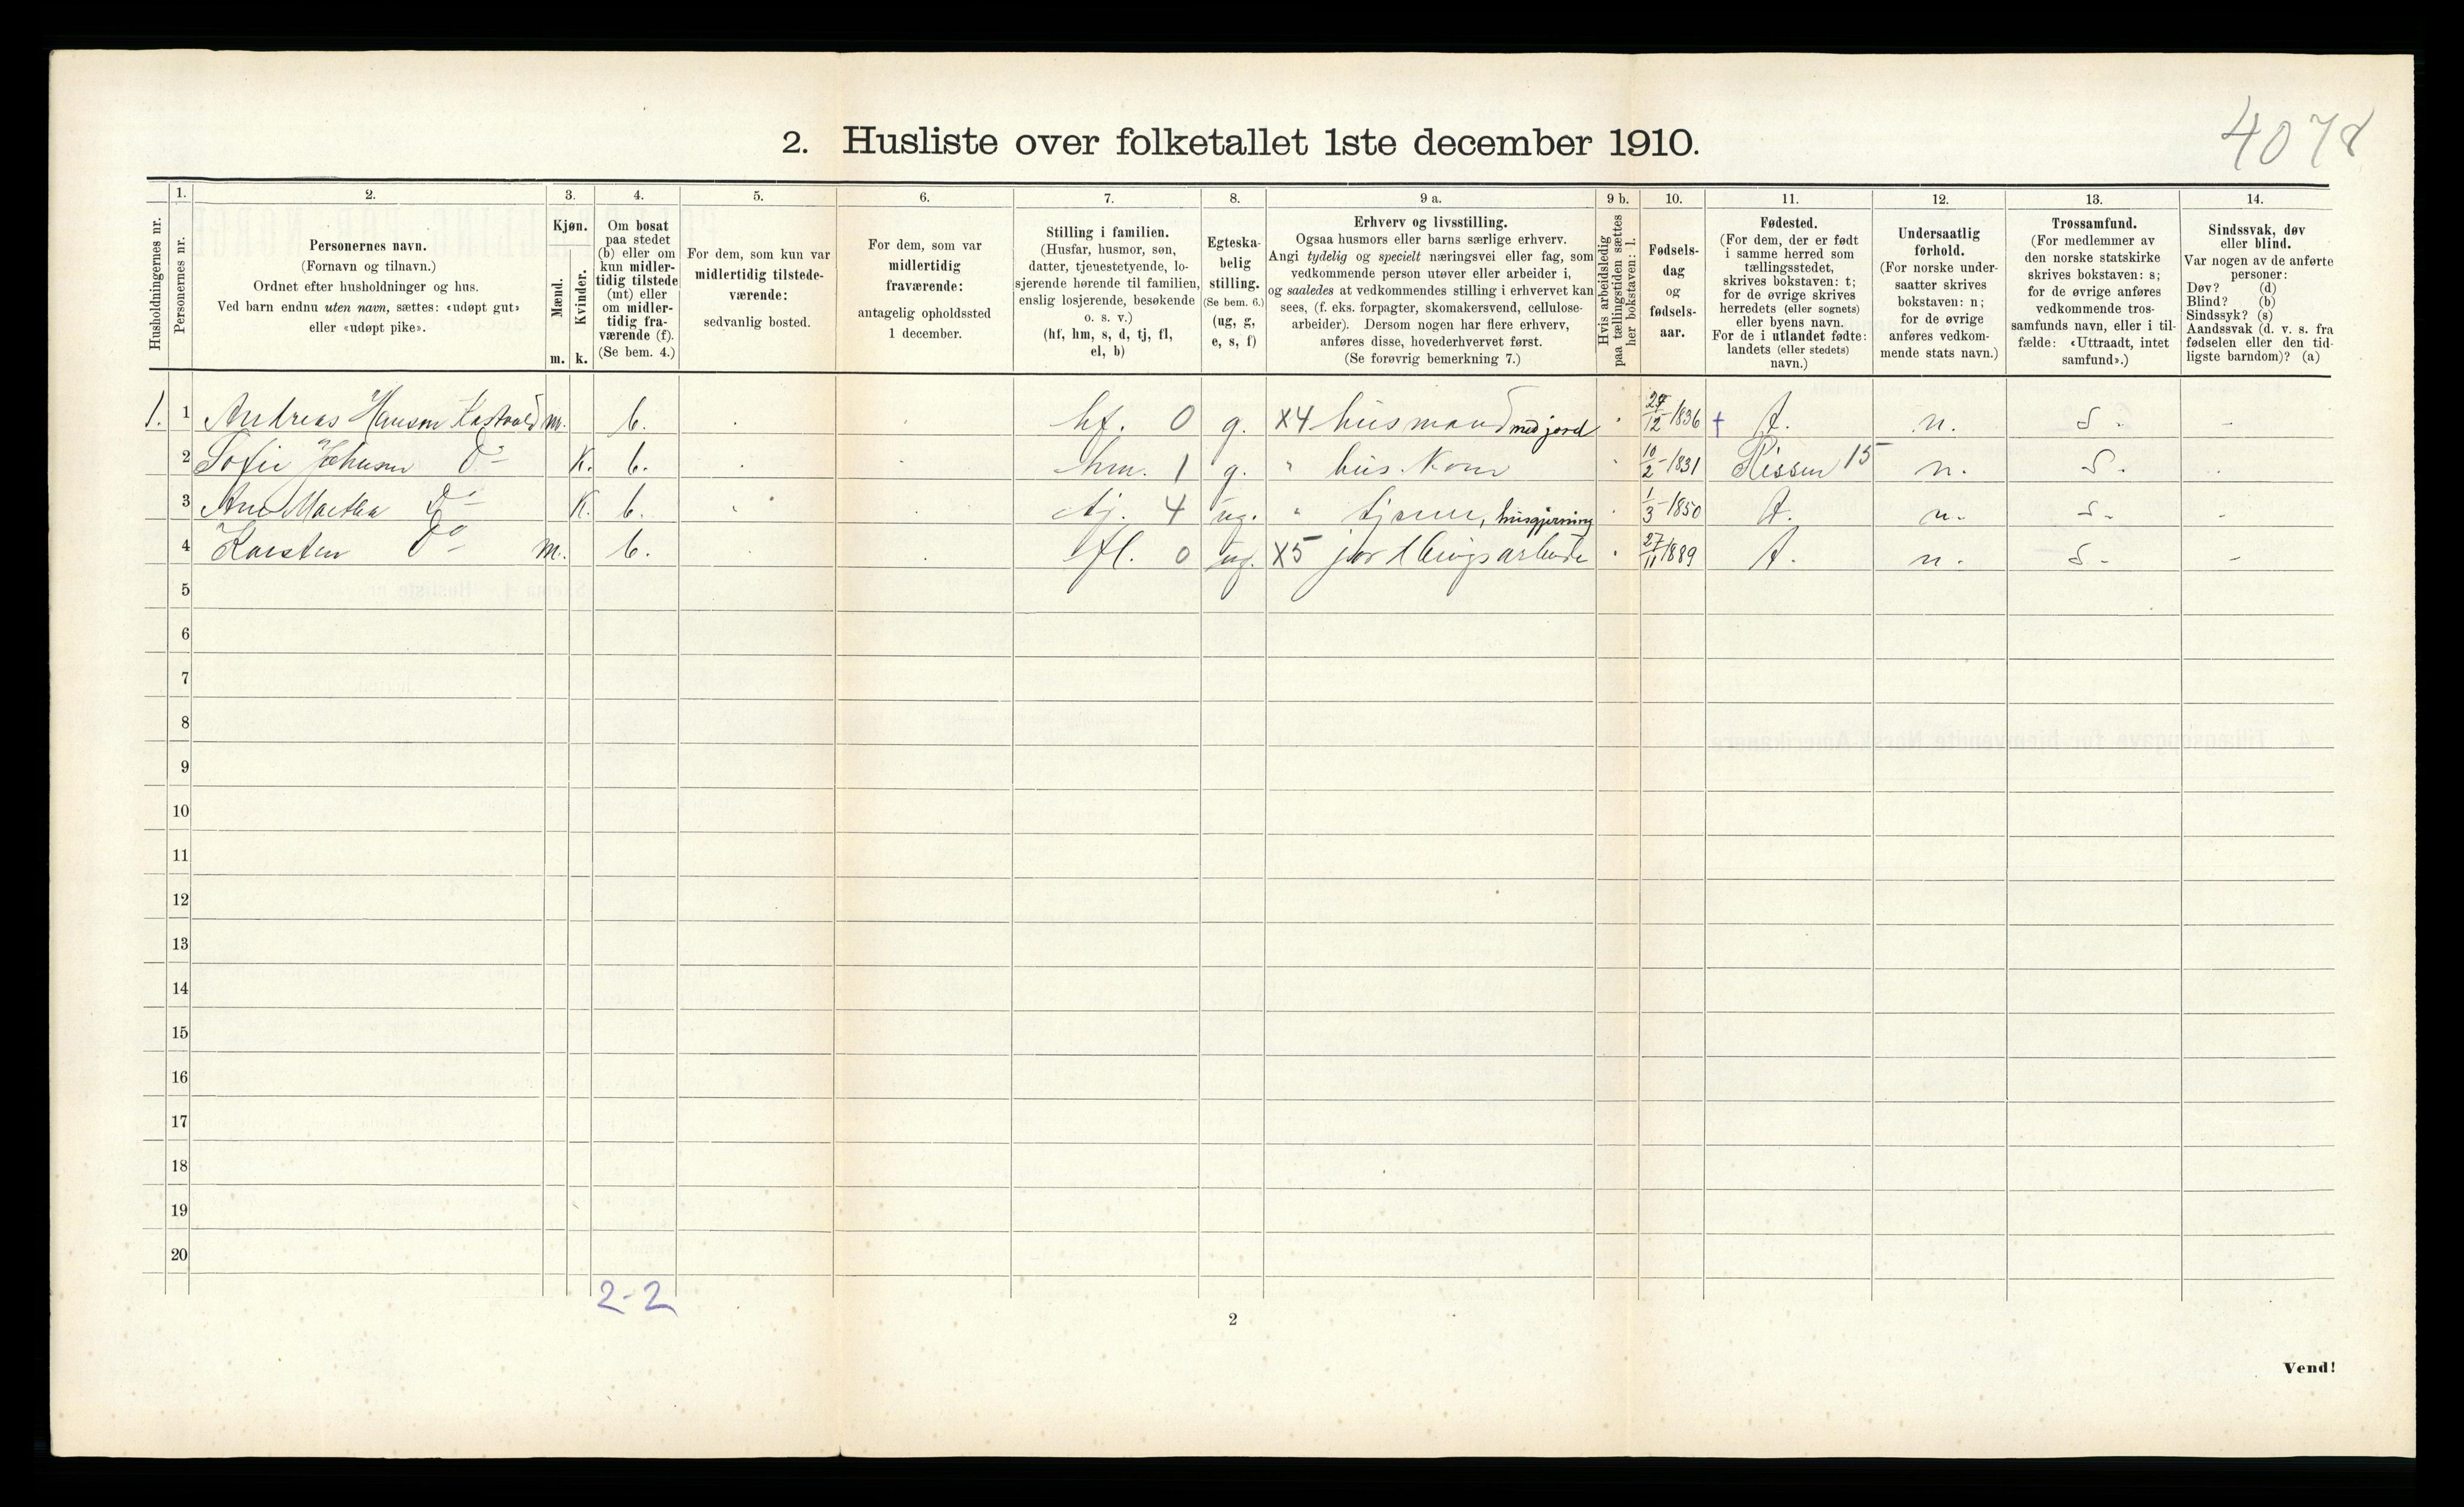 4078
2. Husliste over folketallet 1ste december 1910.
Husholdningernes nr.
1.
Personernes nr.
2.
Personernes navn.
(Fornavn og tilnavn.)
Ordnet efter husholdninger og hus.
Ved barn endnu uten navn, sættes: «udøpt gut»
eller «udøpt pike».
3.
Kjøn.
Mænd.
Kvinder.
m. k.
4.
Om bosat
paa stedet
(b) eller om
kun midler-
tidig tilstede
(mt) eller
om midler-
tidig fra-
værende (f).
(Se bem. 4.)
5.
For dem, som kun var
midlertidig tilstede-
værende:
sedvanlig bosted.
6.
For dem, som var
midlertidig
fraværende:
antagelig opholdssted
1 december.
7.
Stilling i familien.
(Husfar, husmor, søn,
datter, tjenestetyende, lo-
sjerende hørende til familien,
enslig losjerende, besøkende
o. s. v.)
(hf, hm, s, d, tj, fl,
el, b)
8.
Egteska-
belig
stilling.
(Se bem. 6.)
(ug, g,
e, s, f)
9 a.
Erhverv og livsstilling.
Ogsaa husmors eller barns særlige erhverv.
Angi tydelig og specielt næringsvei eller fag, som
vedkommende person utøver eller arbeider i,
og saaledes at vedkommendes stilling i erhvervet kan
sees, (f. eks. forpagter, skomakersvend, cellulose-
arbeider). Dersom nogen har flere erhverv,
anføres disse, hovederhvervet først.
(Se forøvrig bemerkning 7.)
9 b.
Hvis arbeidsledig
paa tællingstiden sættes
her bokstaven: l.
10.
Fødsels-
dag
og
fødsels-
aar.
11.
Fødested.
(For dem, der er født
i samme herred som
tællingsstedet,
skrives bokstaven: t;
for de øvrige skrives
herredets (eller sognets)
eller byens navn.
For de i utlandet fødte:
landets (eller stedets)
navn.)
12.
Undersaatlig
forhold.
(For norske under-
saatter skrives
bokstaven: n;
for de øvrige
anføres vedkom-
mende stats navn.)
13.
Trossamfund.
(For medlemmer av
den norske statskirke
skrives bokstaven: s;
for de øvrige anføres
vedkommende tros-
samfunds navn, eller i til-
fælde: «Uttraadt, intet
samfund».)
14.
Sindssvak, døv
eller blind.
Var nogen av de anførte
personer:
Døv? (d)
Blind? (b)
Sindssyk? (s)
Aandssvak (d. v. s. fra
fødselen eller den tid-
ligste barndom)? (a)
1. 1 Andreas Hansen m. b. hf. 0 g. X4 husmand med jord 12-1836 t. n. S. -
2 Sofie Johnsen Do K. b. hm. 1 g. " 10/2-1831 Rissen 15 n. S.
3 Martha Do K. b. tj. 4 ug. " husgjerning 1/3-1850 t. n. S. -
4 Karsten Do m. b. fl. 0 ug. X5 27/11 1889 t. n. S. -
5
6
7
8
9
10
11
12
13
14
15
16
17
18
19
20
2-2
2
Vend!